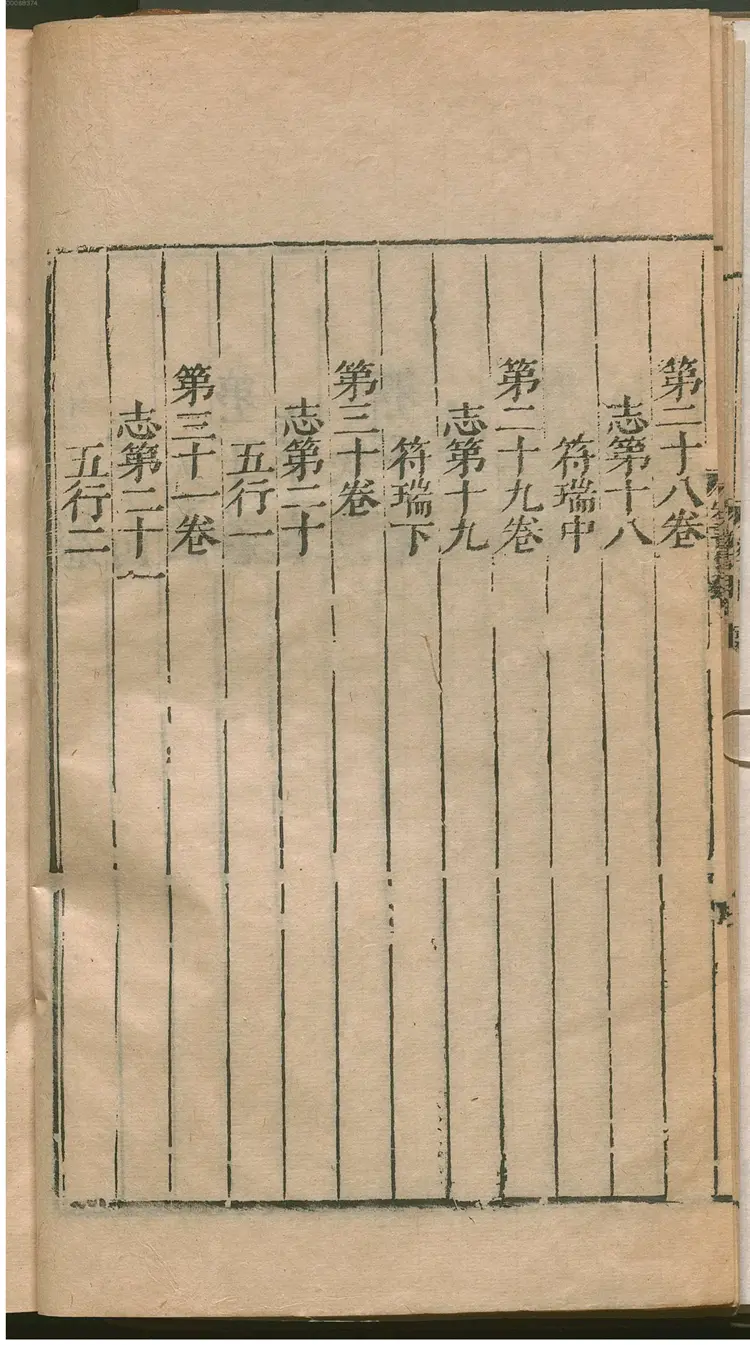 第二十八卷
志第十八
符瑞中
第二十九卷
志第十九
符瑞下
第三十卷
志第二十
五行一
第三十一卷
志第二十一
五行二